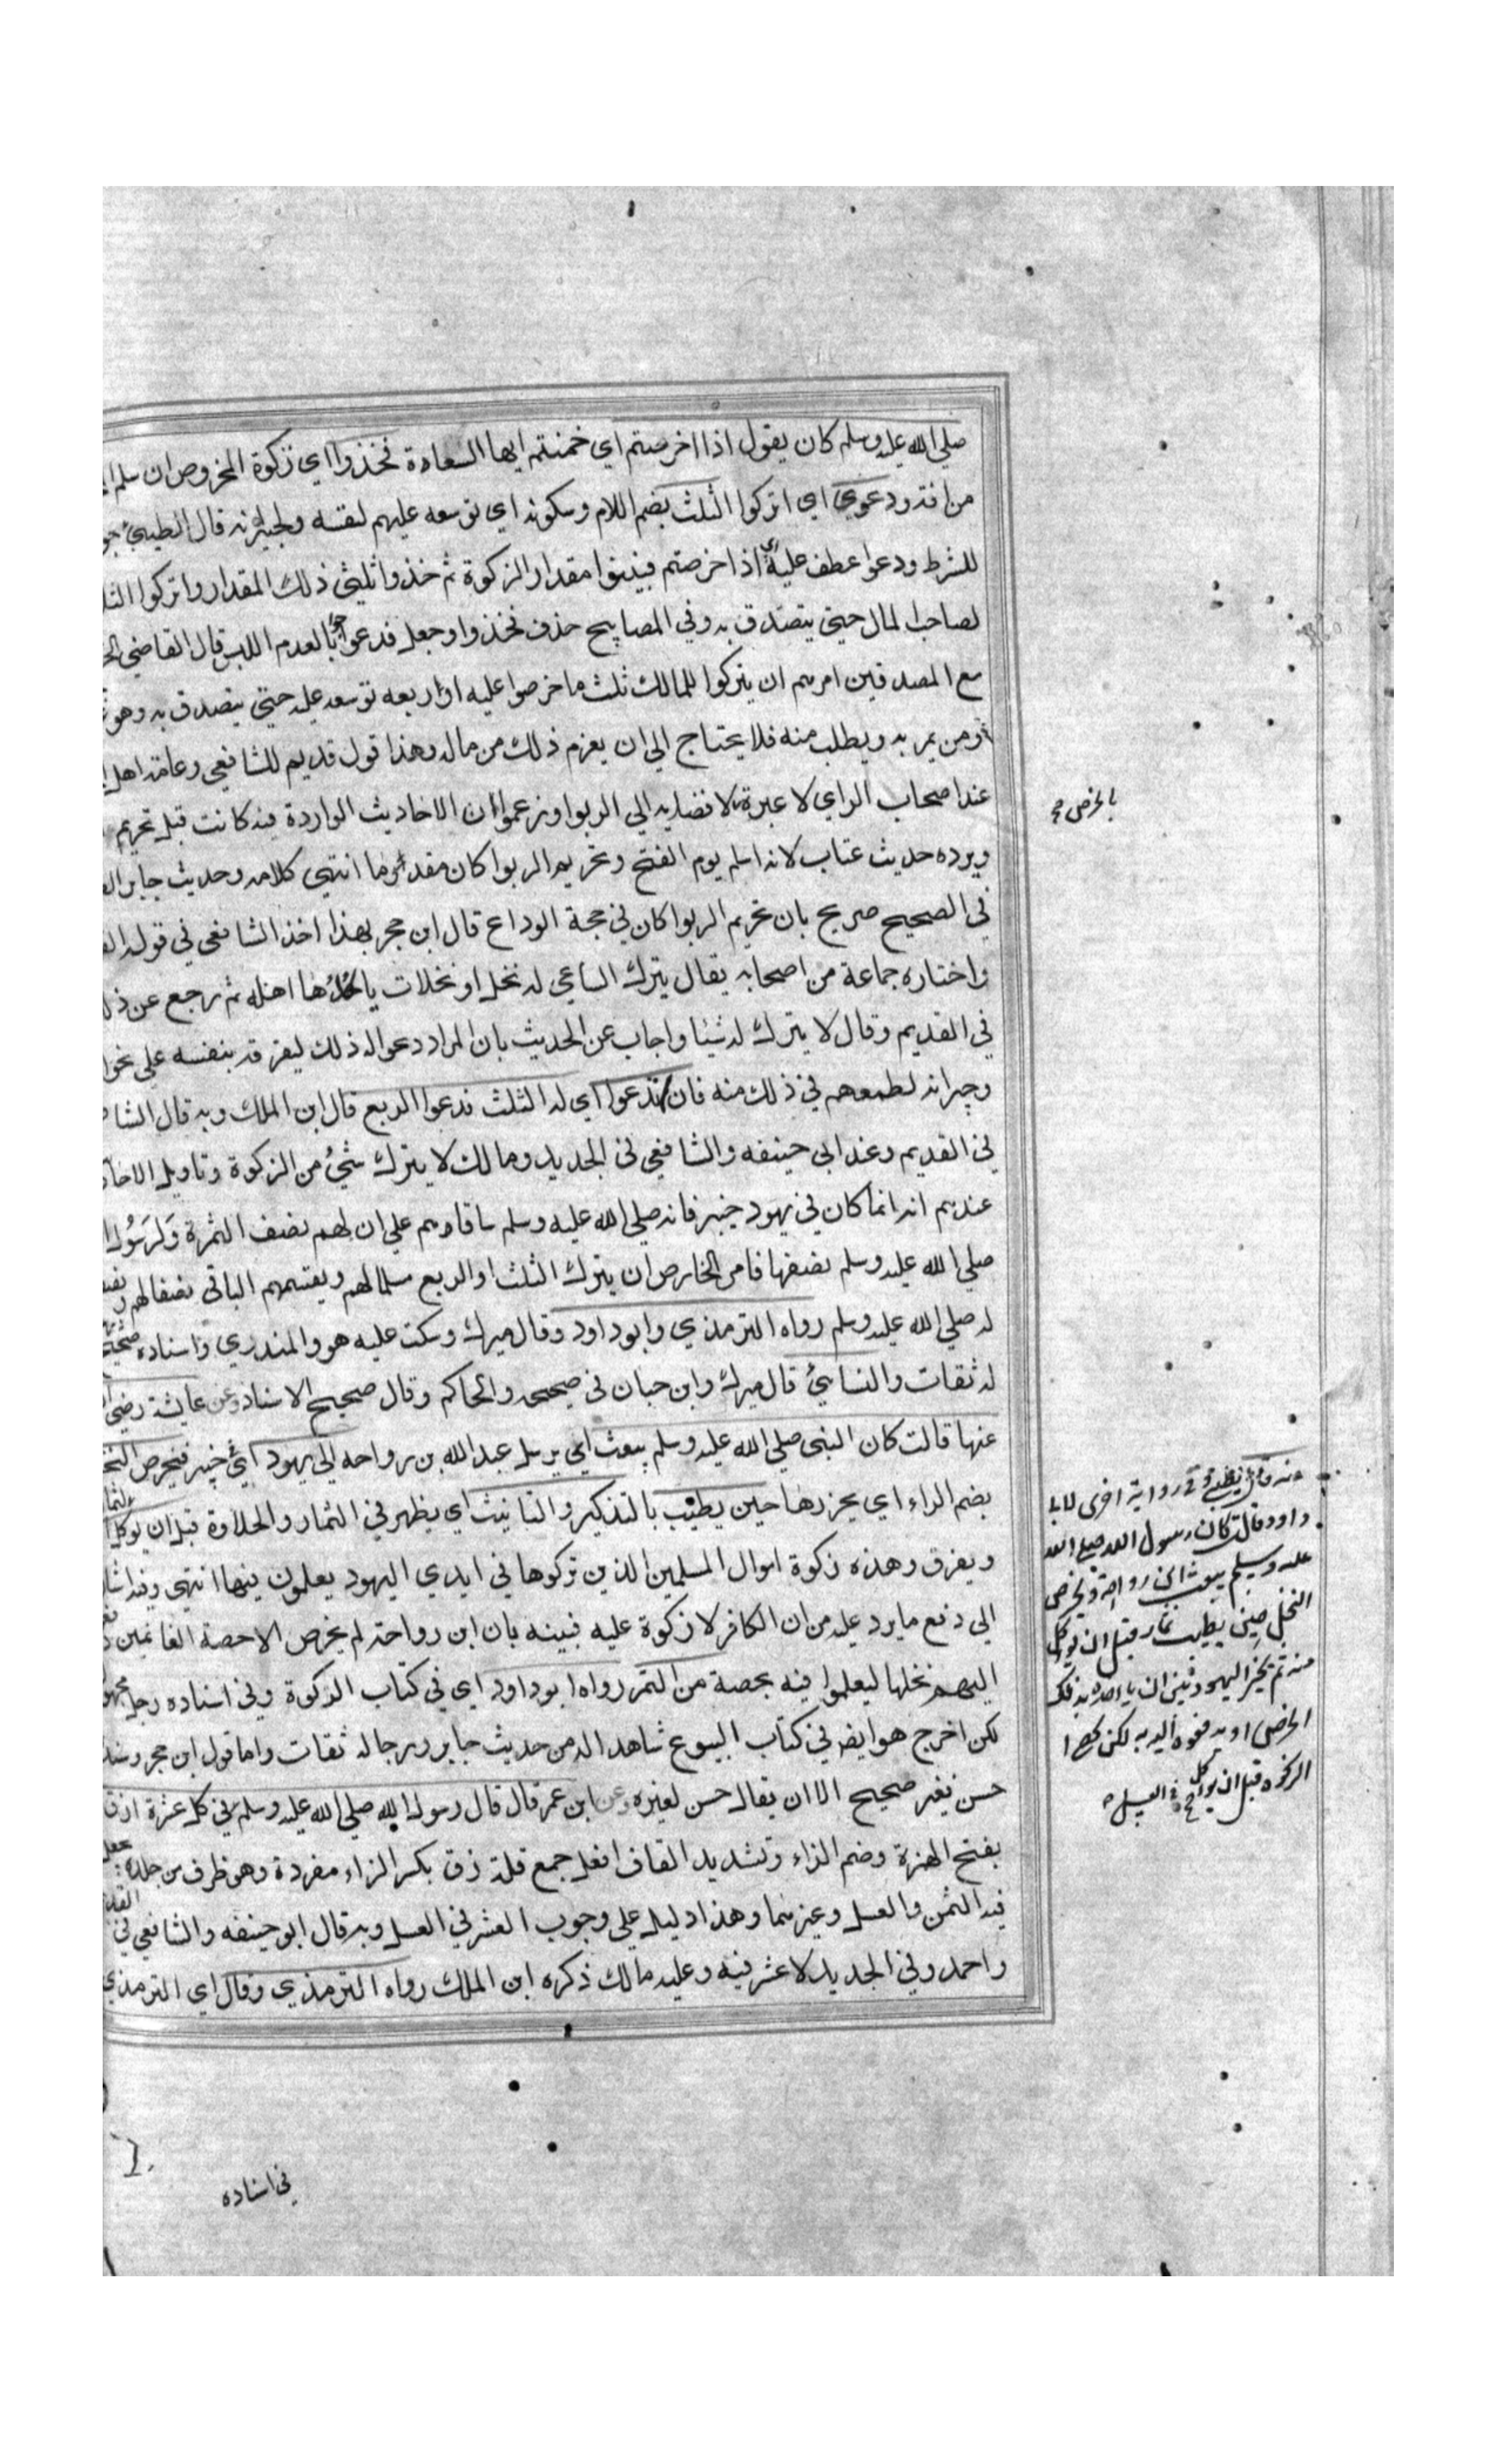 صلي الله عليه وسلم كان يقول اذا اخرصتم اي خمنتم ايها السعادة فخذوا اي زكوة المخروص ان سلم
من افته ودعوي اي اتركوا الثلث بضم اللام وسكونه اي توسعه عليهم لنفسه ولجيرانه قال الطيبي
للشرط ودعوا عطف عليه اي اذا خرصتم فبينوا مقدار الزكوة ثم خذوا ثلثي ذلك المقدار واتركوا
لصاحب المال حيتي يتصدق به وفي المصابيح حذف فخذوا وجعل فدعوا جوابا لعدم اللبس قال القاضي
مع المصدقين امرهم ان يتركوا للمالك ثلث ما خرصوا عليه او اربعه توسعه عليه حتي يتصدق به وهو
ومن يمر به ويطلب منه فلا يحتاج الي ان يعزم ذلك من ماله وهذا قول قديم للشافعي وعامة اهل
عند اصحاب الراي لا عبرة لافضايه الي الربوا وزعموا ان الاحاديث الواردة فيه كانت قبل تحريم
ويرده حديث عتاب لانه اسلم يوم الفتح وتحريم الربوا كان مقدما انتهي كلامه وحديث جابر
في الصحيح صريح بان تحريم الربوا كان في حجة الوداع قال ابن حجر بهذا اخذ الشافعي في قوله
واختاره جماعة من اصحابه يقال يترك الساعي له نخل او نخلات ياكلها اهله ثم رجع عن
في القديم وقال لا يترك له شيئا واجاب عن الحديث بان المراد دعوا له ذلك ليفرقه بنفسه علي نحو
وجيرانه لطمعهم في ذلك منه فان لم تدعوا اي له الثلث فدعوا الربع قال ابن الملك وبه قال
في القديم وعند ابي حنيفه والشافعي في الجديد ومالك لا يترك شيئ من الزكوة وتاويل
عندهم انه انما كان في يهود خيبر فانه صلي الله عليه وسلم ساقاهم علي ان لهم نصف الثمرة ولرسول
صلي الله عليه وسلم نصفها فامر الخارص ان يترك الثلث او الربع سلما لهم ويقسمهم الباقي نصفا لهم
له صلي الله عليه وسلم رواه الترمذي وابو داود وقال ميرك وسكت عليه هو والمنذري واسناده صحيح
له ثقات والنسائي قال ميرك وابن حبان في صحيحه والحاكم وقال صحيح الاسناد وعن عايشة رضي
عنها قالت كان النبي صلي الله عليه وسلم يبعث اي يرسل عبد الله بن رواحه الي يهود اي خيبر فيخرص
بضم الراء اي يحزرها حين يطيب بالتذكير والتانيث اي يظهر في الثمار والحلاوة قبل ان يوكل
ويفرق وهذه زكوة اموال المسلمين الذين تركوها في ايدي اليهود يعلمون فيها انتهي وفيه
الي دفع ما يرد عليه من ان الكافر لا زكوة عليه فبينه بان ابن رواحة لم يخرص الا حصة الغانمين
اليهم نخلها ليعلموا فيه بحصة من الثمر رواه ابو داود اي في كتاب الزكوة وفي اسناده رجل
لكن اخرج هو ايضا في كتاب البيوع شاهدا له من حديث جابر ورجاله ثقات واما قول ابن حجر
حسن بغير صحيح الا ان يقال حسن لغيره وعن ابن عمر قال قال رسول الله صلي الله عليه وسلم في كل عشرة ازق
بفتح الهمزة وضم الزاء وتشديد القاف افعل جمع قلة زق بكسر الزاء مفردة وهو ظرف من جلد
فيه الثمن والعسل وغيرهما وهذا دليل علي وجوب العشر في العسل وبه قال ابو حنيفه والشافعي في
واحمد وفي الجديد لا عشر فيه وعليه مالك ذكره ابن الملك رواه الترمذي وقال اي الترمذي
في اسناده
بالخرص
في رواية اخرى لابي
داود قالت كان رسول الله صلى الله
عليه وسلم يبعث ابن رواحة فيخرص
النخل حين يطيب ثمار قبل ان يوكل
منه ثم يخير اليهود بين ان ياخذه بذلك
الخرص او يدفعوه اليه به لكن
الزكوة قبل ان يوكل